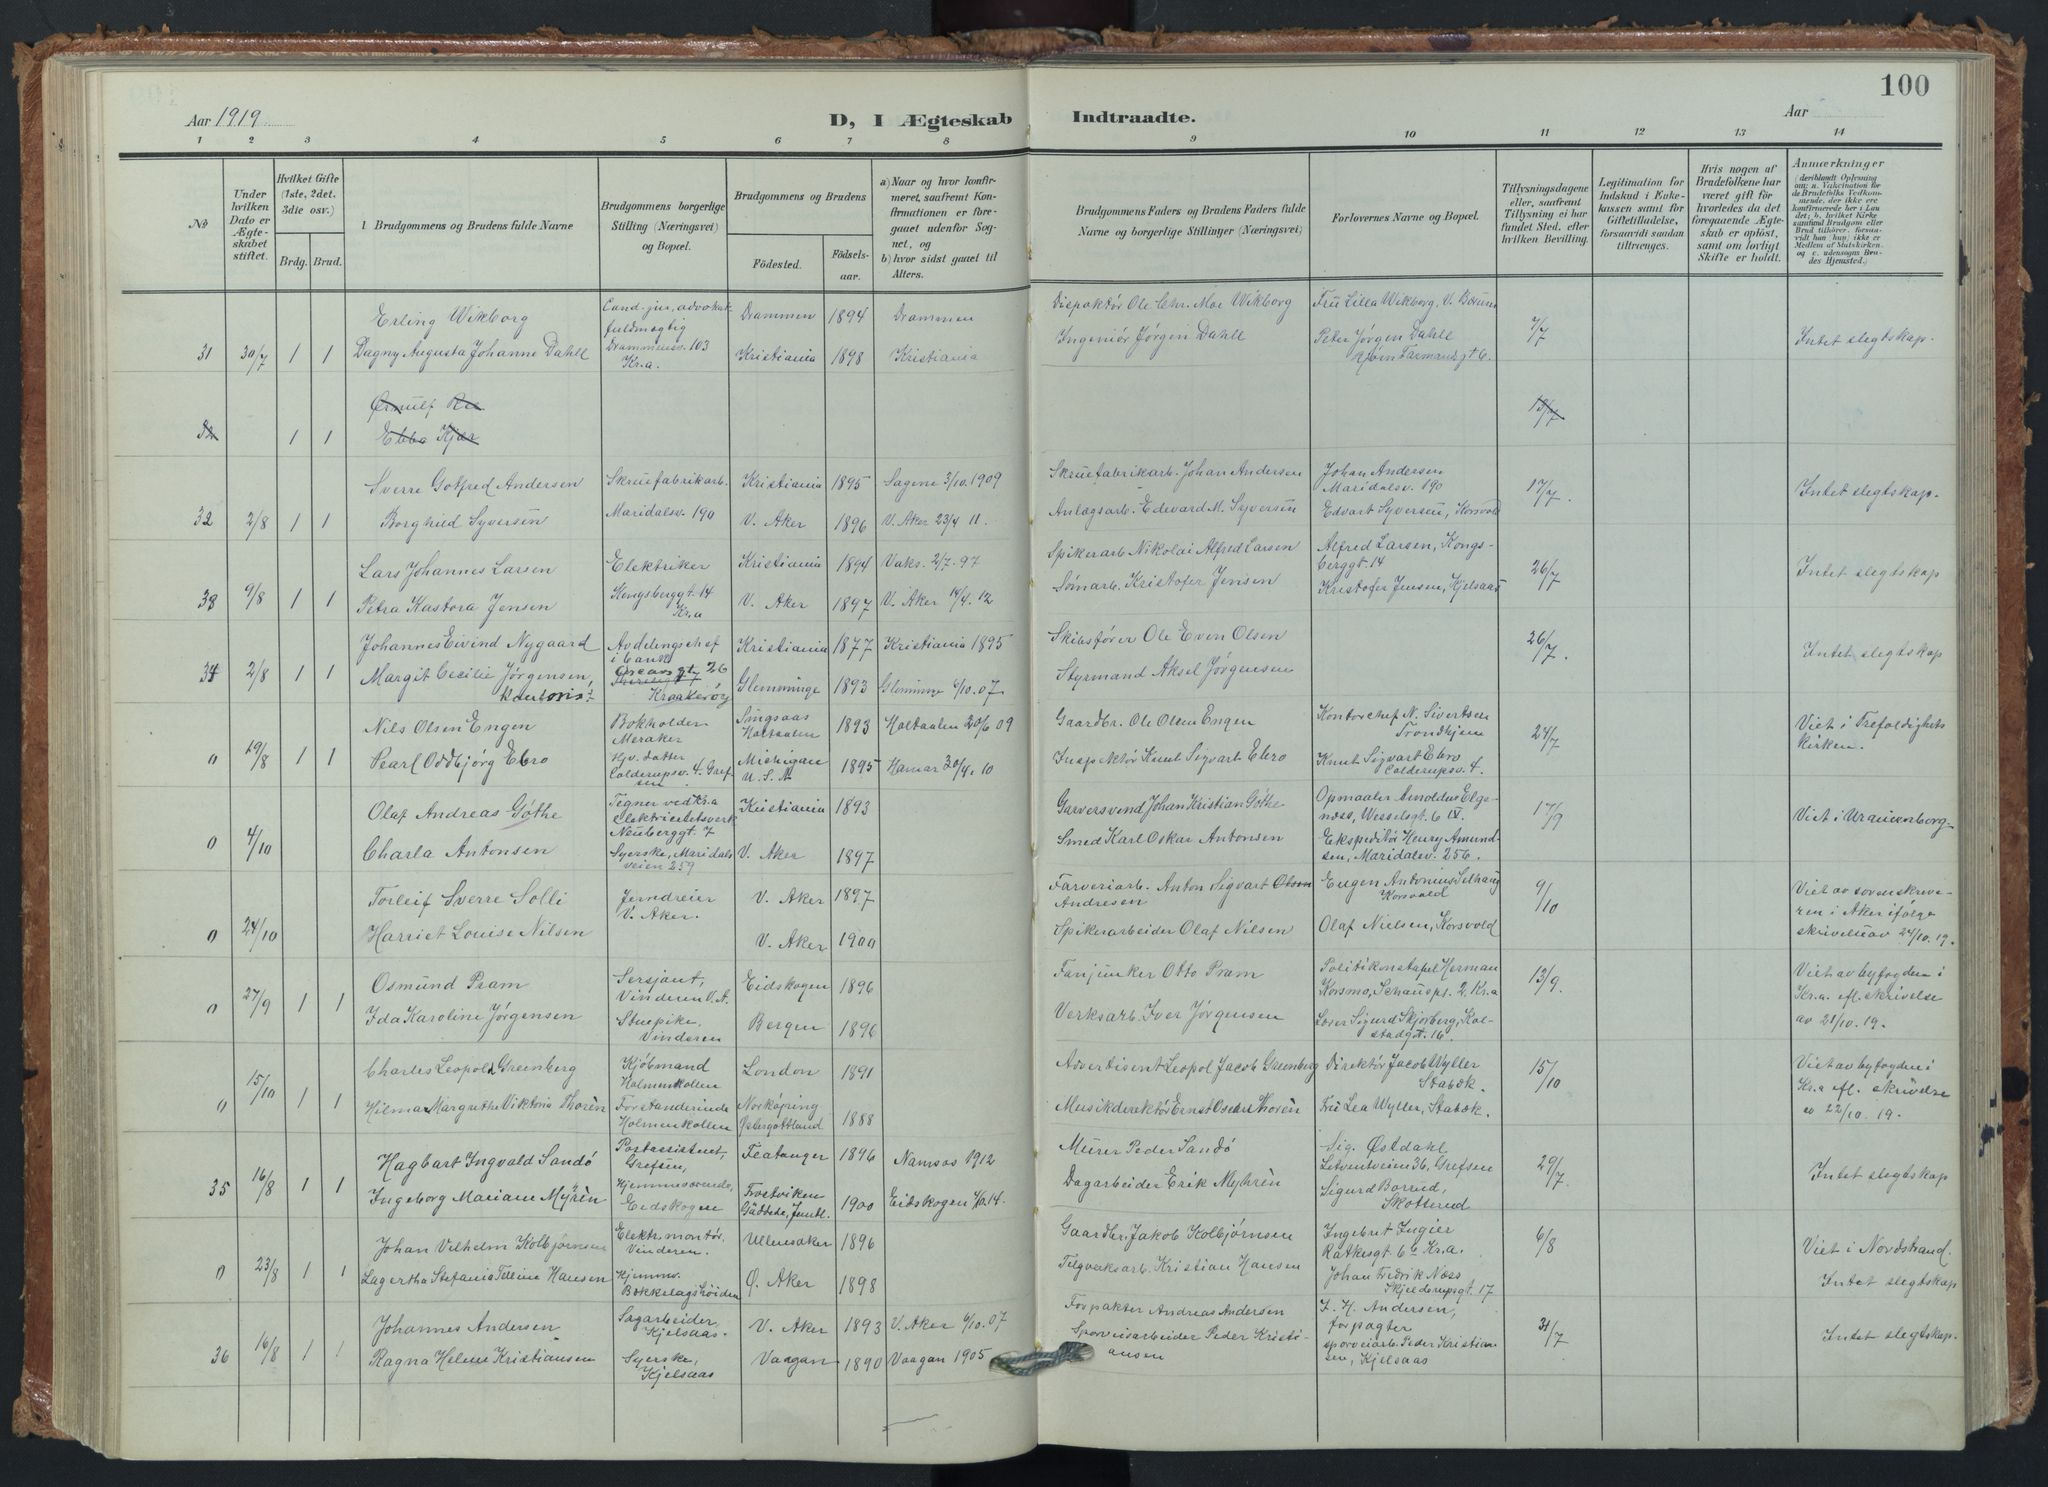 100
Aar 1919
D, I Ægteskab Indtraadte.
Aar
1 2 3 4 5 6 7 8 9 10 11 12 13 14
No
Under hvilken Dato er Ægteskabet stiftet.
Hvilket Gifte (1ste, 2det, 3die osv.)
Brdg. Brud.
Brudgommens og Brudens fulde Navne
Brudgommens borgerlige Stilling (Næringsvei) og Bopæl.
Brudgommens og Brudens
Fødested.
Fødselsaar.
a) Naar og hvor konfirmeret, saafremt Konfirmationen er foregaaet udenfor Sognet, og
b) hvor sidst gaaet til Alters.
Brudgommens Faders og Brudens Faders fulde Navne og borgerlige Stillinger (Næringsvei)
Forlovernes Navne og Bopæl.
Tillysningsdagene eller, saafremt Tillysning ei har fundet Sted, efter hvilken Bevilling.
Legitimation for Indskud i Enkekassen samt for Giftetilladelse, forsaavidt saadan tiltrænges.
Hvis nogen af Brudefolkene har været gift før hvorledes da det foregaaende Ægteskab er opløst, samt om lovligt Skifte er holdt.
Anmærkninger
(deriblandt Oplysning om: a. Vakcination for de Brudefolks Vedkommende, der ikke ere konfirmerede her i Landet; b. hvilket Kirkesamfund Brudgom eller Brud tilhører, forsaavidt han (hun) ikke er Medlem af Statskirken, og c. udensogns Brudes Hjemsted.)
31 30/7 1 1
Erling Wikborg
Cand. jur., advokatfuldmægtig
Drammen 1894 Drammen
Dispaktør Ole Chr. Moe Wikborg
Fru Lilla Wikborg, V. Bærum
7/7
Dagny Augusta Johanne Dahll
Drammensv. 103 Kr.a.
Kristiania 1898 Kristiania
Ingeniør Jørgen Dahll
Peter Jørgen Dahll
Intet slegtskap.
1 1
Ebba Kjær
13/7
32 2/8 1 1
Sverre Gotfred Andersen
Skruefabrikarb.
Kristiania 1895 Sagene 3/10. 1909
Skruefabrikarb. Johan Andersen
Johan Andersen Maridalsv. 190
17/7.
Intet slegtskap.
Borghild Syversen
Maridalsv. 190
V. Aker 1896 V. Aker 23/4 11.
Anlagsarb. Edevard M. Syversen
Edvart Syversen, Korsvold
38 9/8 1 1
Lars Johannes Larsen
Elektriker
Kristiania 1894 Vaks. 2/7. 97
Spikerarb. Nikolai Alfred Larsen
Alfred Larsen, Kongsberggt. 14
26/7
Intet slegtskap
Petra Kastora Jensen
Kongsberggt. 14 Kr.a
V. Aker 1897 V. Aker 14/4. 12
Sømarb. Kristofer Jensen
Kristofer Jensen, Kjelsaas
34 2/8 1 1
Johannes Eivind Nygaard
Avdelingschef i bank
Kristiania 1877 Kristiania 1895
Skibsfører Ole Even Olsen
26/7
Intet slegtskap
Margit Cecilie Jørgensen,
Kontorist
Oscarsgt 26
Kraakerøy
Glemminge 1893 Glemminge 6/10. 07
Styrmand Aksel Jørgensen
0 19/8 1 1
Nils Olsen Engen
Bokholder Meraker
Singsaas Holtaalen 1893 Holtaalen 20/6 09
Gaardbr. Ole Olsen Engen
Kontorchef N. Sivertsen Trondhjem
24/7
Viet i Trefoldighets kirken.
Pearl Oddbjørg Ebro
Hjv. datter Colderupsv. 4. Grefsen
Michigan U.S.A 1895 Hamar 30/4. 10
Inspektør Knut Sigvart Ebro
Knut Sigvart Ebro Colderupsv. 4.
0 4/10
Olaf Andreas Göthe
Tegner ved Kr.a Elektricitetsverk Neuberggt. 7
Kristiania 1893
Garversvend Johan Kristian Göthe
Opmaaler Arnoldus Elgenæss, Wesselsgt. 6 IV.
17/9
Viet i Uranienborg
Charla Antonsen
Syerske, Maridalsveien 259
V. Aker 1897
Smed Karl Oskar Antonsen
Ekspeditør Henry Amundsen, Maridalsv. 256.
0 24/10
Torleif Sverre Solli
Jerndreier V. Aker.
V. Aker 1897
Farveriarb. Anton Sigvart Olsen Andresen
Eugen Antonius Selhaug Korsvold
9/10
Viet av sorenskriveren i Aker ifølge skrivelse av 24/10. 19.
Harriet Louise Nilsen
V. Aker 1900
Spikerarbeider Olaf Nilsen
Olaf Nielsen, Korsvold
0 27/9 1 1
Osmund Pram
Sersjant, Vinderen V. A.
Eidskogen 1896
Fanjunker Otto Pram
Politikonstabel Herman Korsmo, Schouspl. 2. Kr.a
13/9.
Viet av byfogden i Kr.a. efl. skrivelse av 21/10. 19.
Ida Karoline Jørgensen
Stuepike, Vinderen
Bergen 1896
Verksarb. Iver Jørgensen
Lærer Sigurd Skjorberg, Kolstadgt. 16.
0 15/10 1 1
Charles Leopold Greenberg
Kjøbmand Holmenkollen
London 1891
Advertisent Leopol Jacob Greenberg
Direktør Jacob Wyller Stabæk.
15/10
Viet av byfogden i Kr.a efl. skrivelse av 22/10. 19.
Hilma Margrethe Viktoria Thorén
Forstanderinde Holmenkollen
Norköping Østergöttland 1888
Musikdirektör Ernst Oscar Thorén
Fru Lea Wyller, Stabæk.
35 16/8 1 1
Hagbart Ingvald Sandö
Postassistent, Grefsen,
Flatanger 1896 Namsos 1912
Murer Peder Sandö
Sig. Østdahl Lerveitveien 36, Grefsen
29/7
Intet slegtskap
Ingeborg Mariam Myrén
Hjemmeværende, Eidskogen
Frostviken Gäddede, Jemtl. 1900 Eidskogen 4/10. 14.
Dagarbeider Erik Myhrén
Sigurd Borrud, Skotterud
0 23/8 1 1
Johan Vilhelm Kolbjørnsen
Elektr. montør, Vinderen.
Ullensaker 1896
Gaardbr. Jakob Kolbjørnsen
Ingebret Ingier Ratkesgt. 6 b Kr.a.
6/8
Viet i Nordstrand.
Lagertha Stefania Telline Hansen
Hjemmv. Bækkelagshöiden
Ø. Aker 1898
Teglverksarb. Kristian Hansen
Johan Fredrik Næss Skjelderupsgt. 17
Intet slegtskap
36 16/8 1 1
Johannes Andersen
Sagarbeider, Kjelsaas.
V. Aker 1893 V. Aker 6/10. 07
Forpakter Andreas Andersen
L. H. Andersen, forpagter
31/7
Intet slegtskap.
Ragna Helene Kristiansen
Syerske, Kjelsaas
Vaagan 1890 Vaagan 1905
Sporveisarbeider Peder Kristiansen
sporveiarb. Peder Kristiansen, Kjelsaas